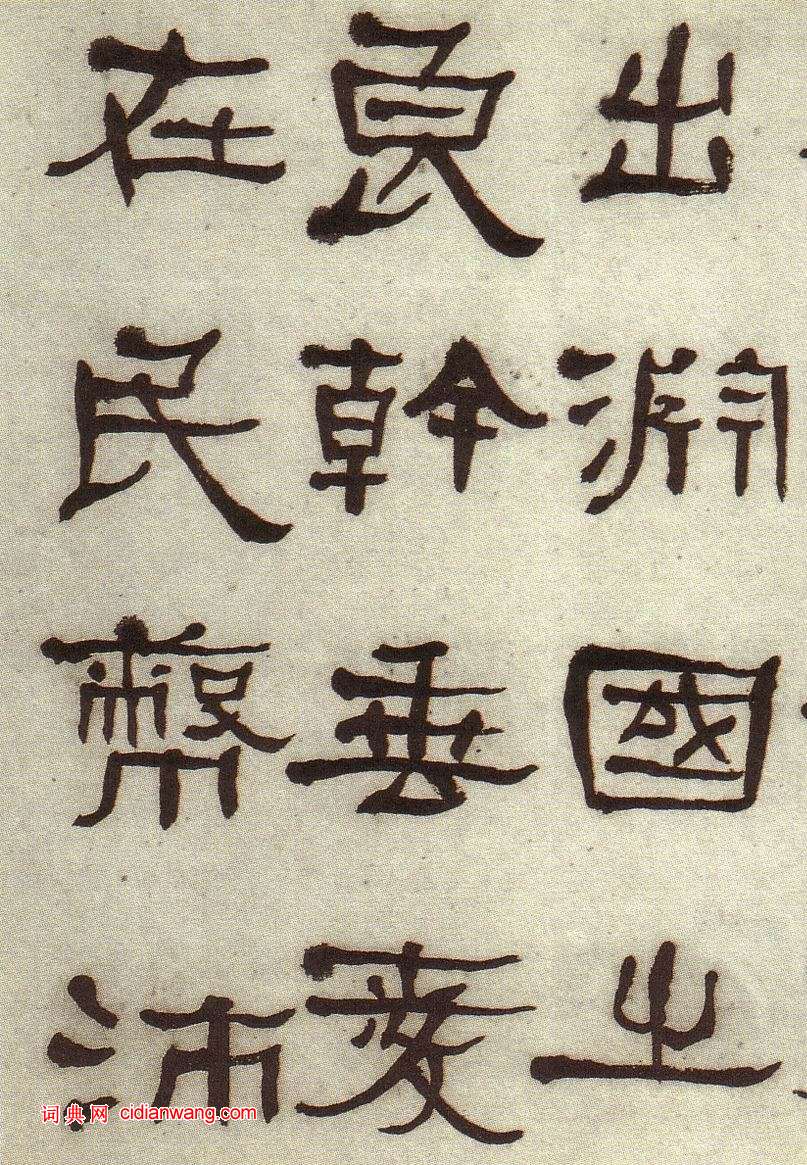 出淵國之
良幹垂愛
在民幣沛
词典网 cidianwang.com